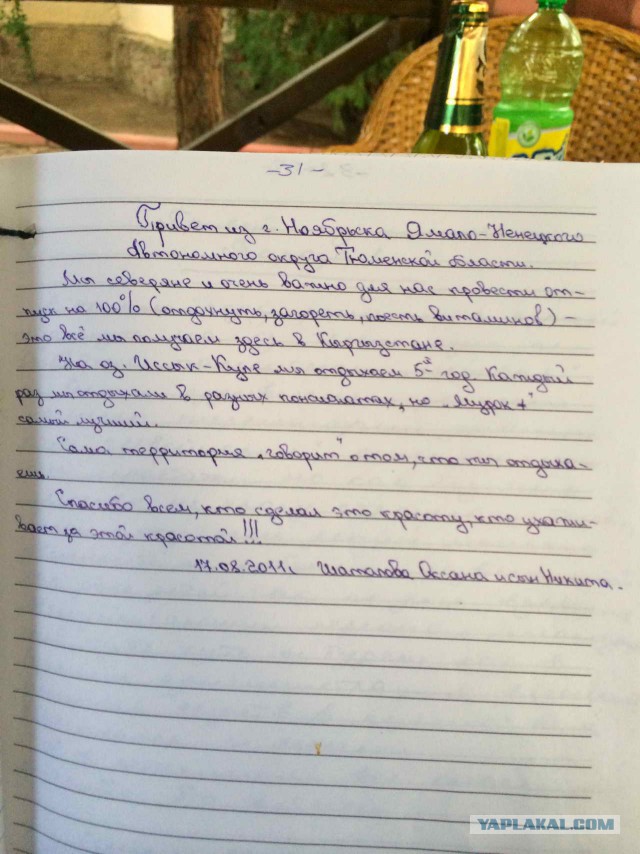 -31-
Привет из г. Ноябрьска Ямало-Ненецкого
Автономного округа Тюменской области.
Мы северяне и очень важно для нас провести от-
пуск на 100% (отдохнуть, загореть, поесть витаминов) -
это всё мы получаем здесь в Кыргызстане.
На оз. Иссык-Куле мы отдыхаем 5й год. Каждый
раз мы отдыхали в разных пансиатах, но „Мурок +"
самый лучший.
Сама территория „говорит" о том, что тут отдыха-
ешь.
Спасибо всем, кто сделал эту красоту, кто ухажи-
вает за этой красотой!!!
17.08.2011г. Шаталова Оксана и сын Никита.
YAPLAKAL.COM